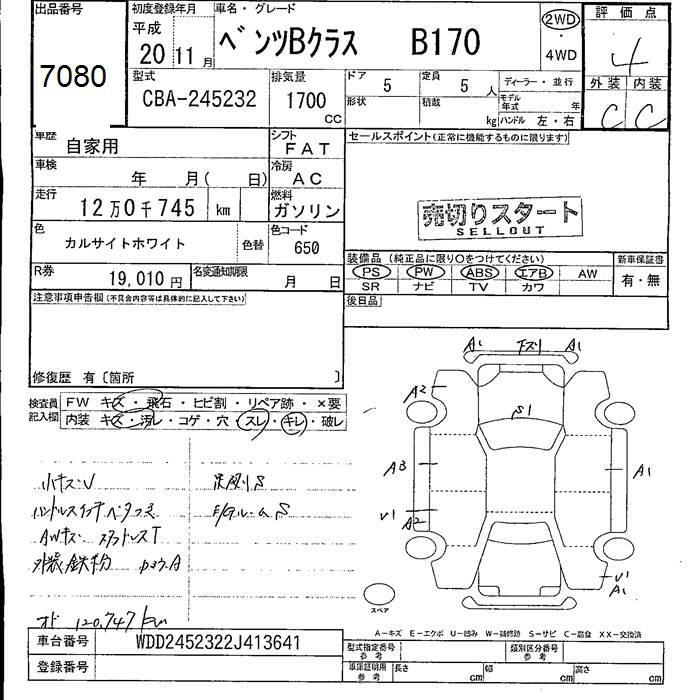 出品番号 初度登録年月 車名・グレード 評価点
7080
平成 20年 11月 ベンツBクラス B170 2WD・4WD 4
外装 内装
C C
型式 排気量 ドア 5 定員 5人 ディーラー・並行
CBA-245232 1700 CC 形状 積載 kg モデル年式 年 ハンドル 左・右
車歴 自家用 シフト FAT セールスポイント(正常に機能するものに限ります)
車検 年 月( 日) 冷房 AC
走行 12万0千745 km 燃料 ガソリン
売切りスタート
SELLOUT
色 カルサイトホワイト 色替 色コード 650
装備品(純正品に限り○をつけてください) 新車保証書
R券 19,010円 名変通知期限 月 日
PS PW ABS エアB AW 有・無
SR ナビ TV カワ
注意事項申告欄(不具合内容等は具体的に記入して下さい) 後日品
修復歴 有〔箇所 〕
検査員記入欄 FW キズ・飛石・ヒビ割・リペア跡・×要
内装 キズ・汚レ・コゲ・穴・スレ・キレ・破レ
A1 下ズリ A1
A2
S1
A3 A1
V1
A2
V1
A1
小キズ・V
AWキズ
外装鉄粉
S
S
オド 120,747km
スペア
A-キズ E-エクボ U-凹み W-補修跡 S-サビ C-腐食 XX-交換済
車台番号 WDD2452322J413641 型式指定番号 参考 類別区分番号 参考
登録番号 車庫証明用 参考 長さ cm 幅 cm 高さ cm